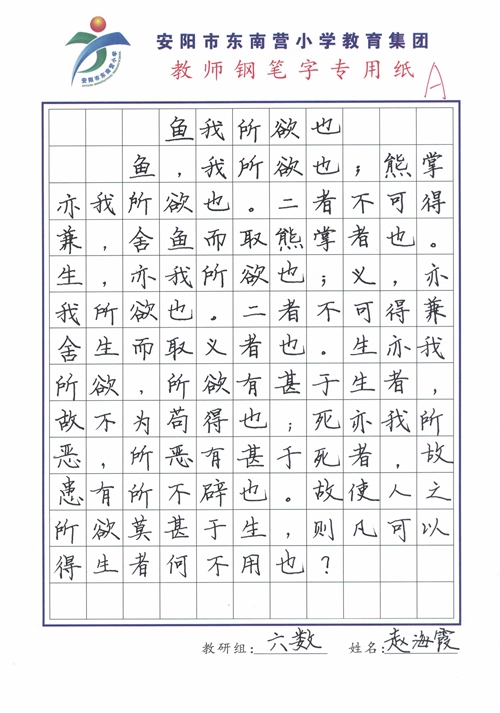 安阳市东南营小学
安阳市东南营小学教育集团
教师钢笔字专用纸
A
鱼我所欲也
鱼,我所欲也;熊掌
亦我所欲也。二者不可得
兼,舍鱼而取熊掌者也。
生,亦我所欲也;义,亦
我所欲也。二者不可得兼
舍生而取义者也。生亦我
所欲,所欲有甚于生者,
故不为苟得也;死亦我所
恶,所恶有甚于死者,故
患有所不辟也。故使人之
所欲莫甚于生,则凡可以
得生者何不用也?
教研组:六数 姓名:赵海霞